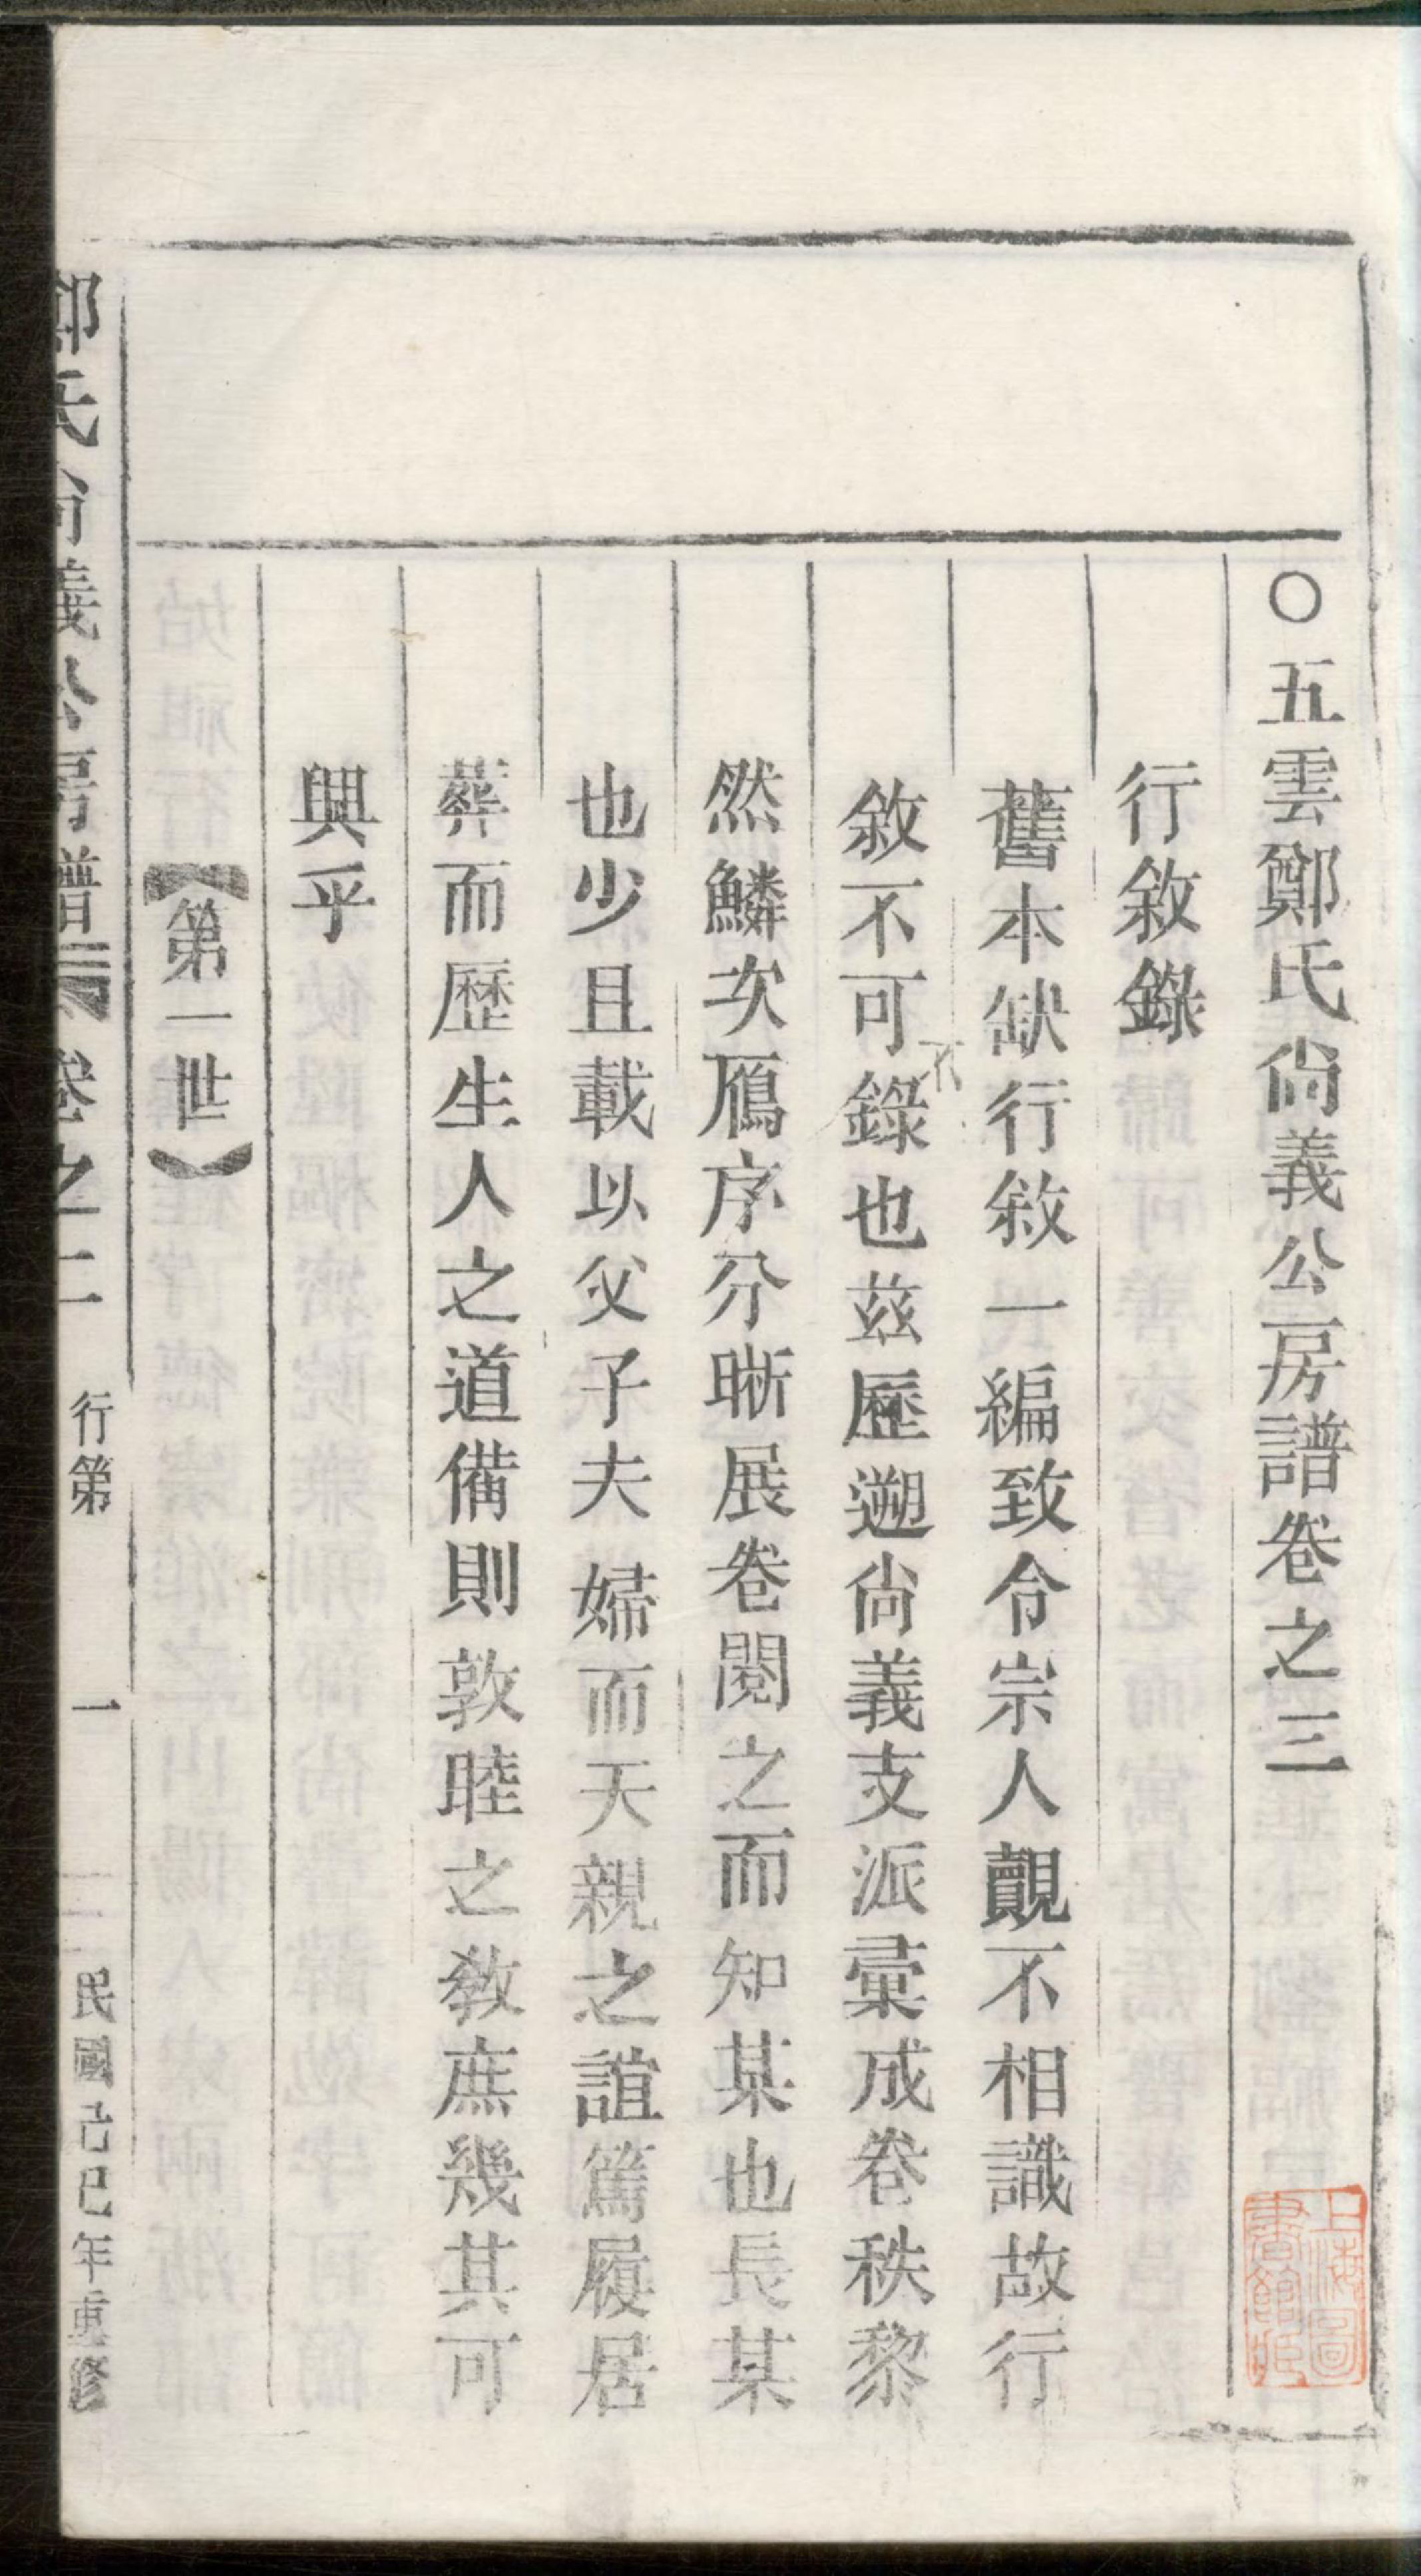 ○五雲鄭氏尙義公房譜卷之三
行敘錄
舊本缺行敘一編致令宗人覿不相識故行
敘不可錄也茲歷遡尙義支派彙成卷秩黎
不
然鱗次鴈序分晰展卷閱之而知某也長某
也少且載以父子夫婦而天親之誼篤履居
葬而歷生人之道備則敦睦之敎庶幾其可
興乎
【第一世】
鄭氏尙義公房譜 卷之二 行第 一 民國己巳年重修
上海圖書館藏